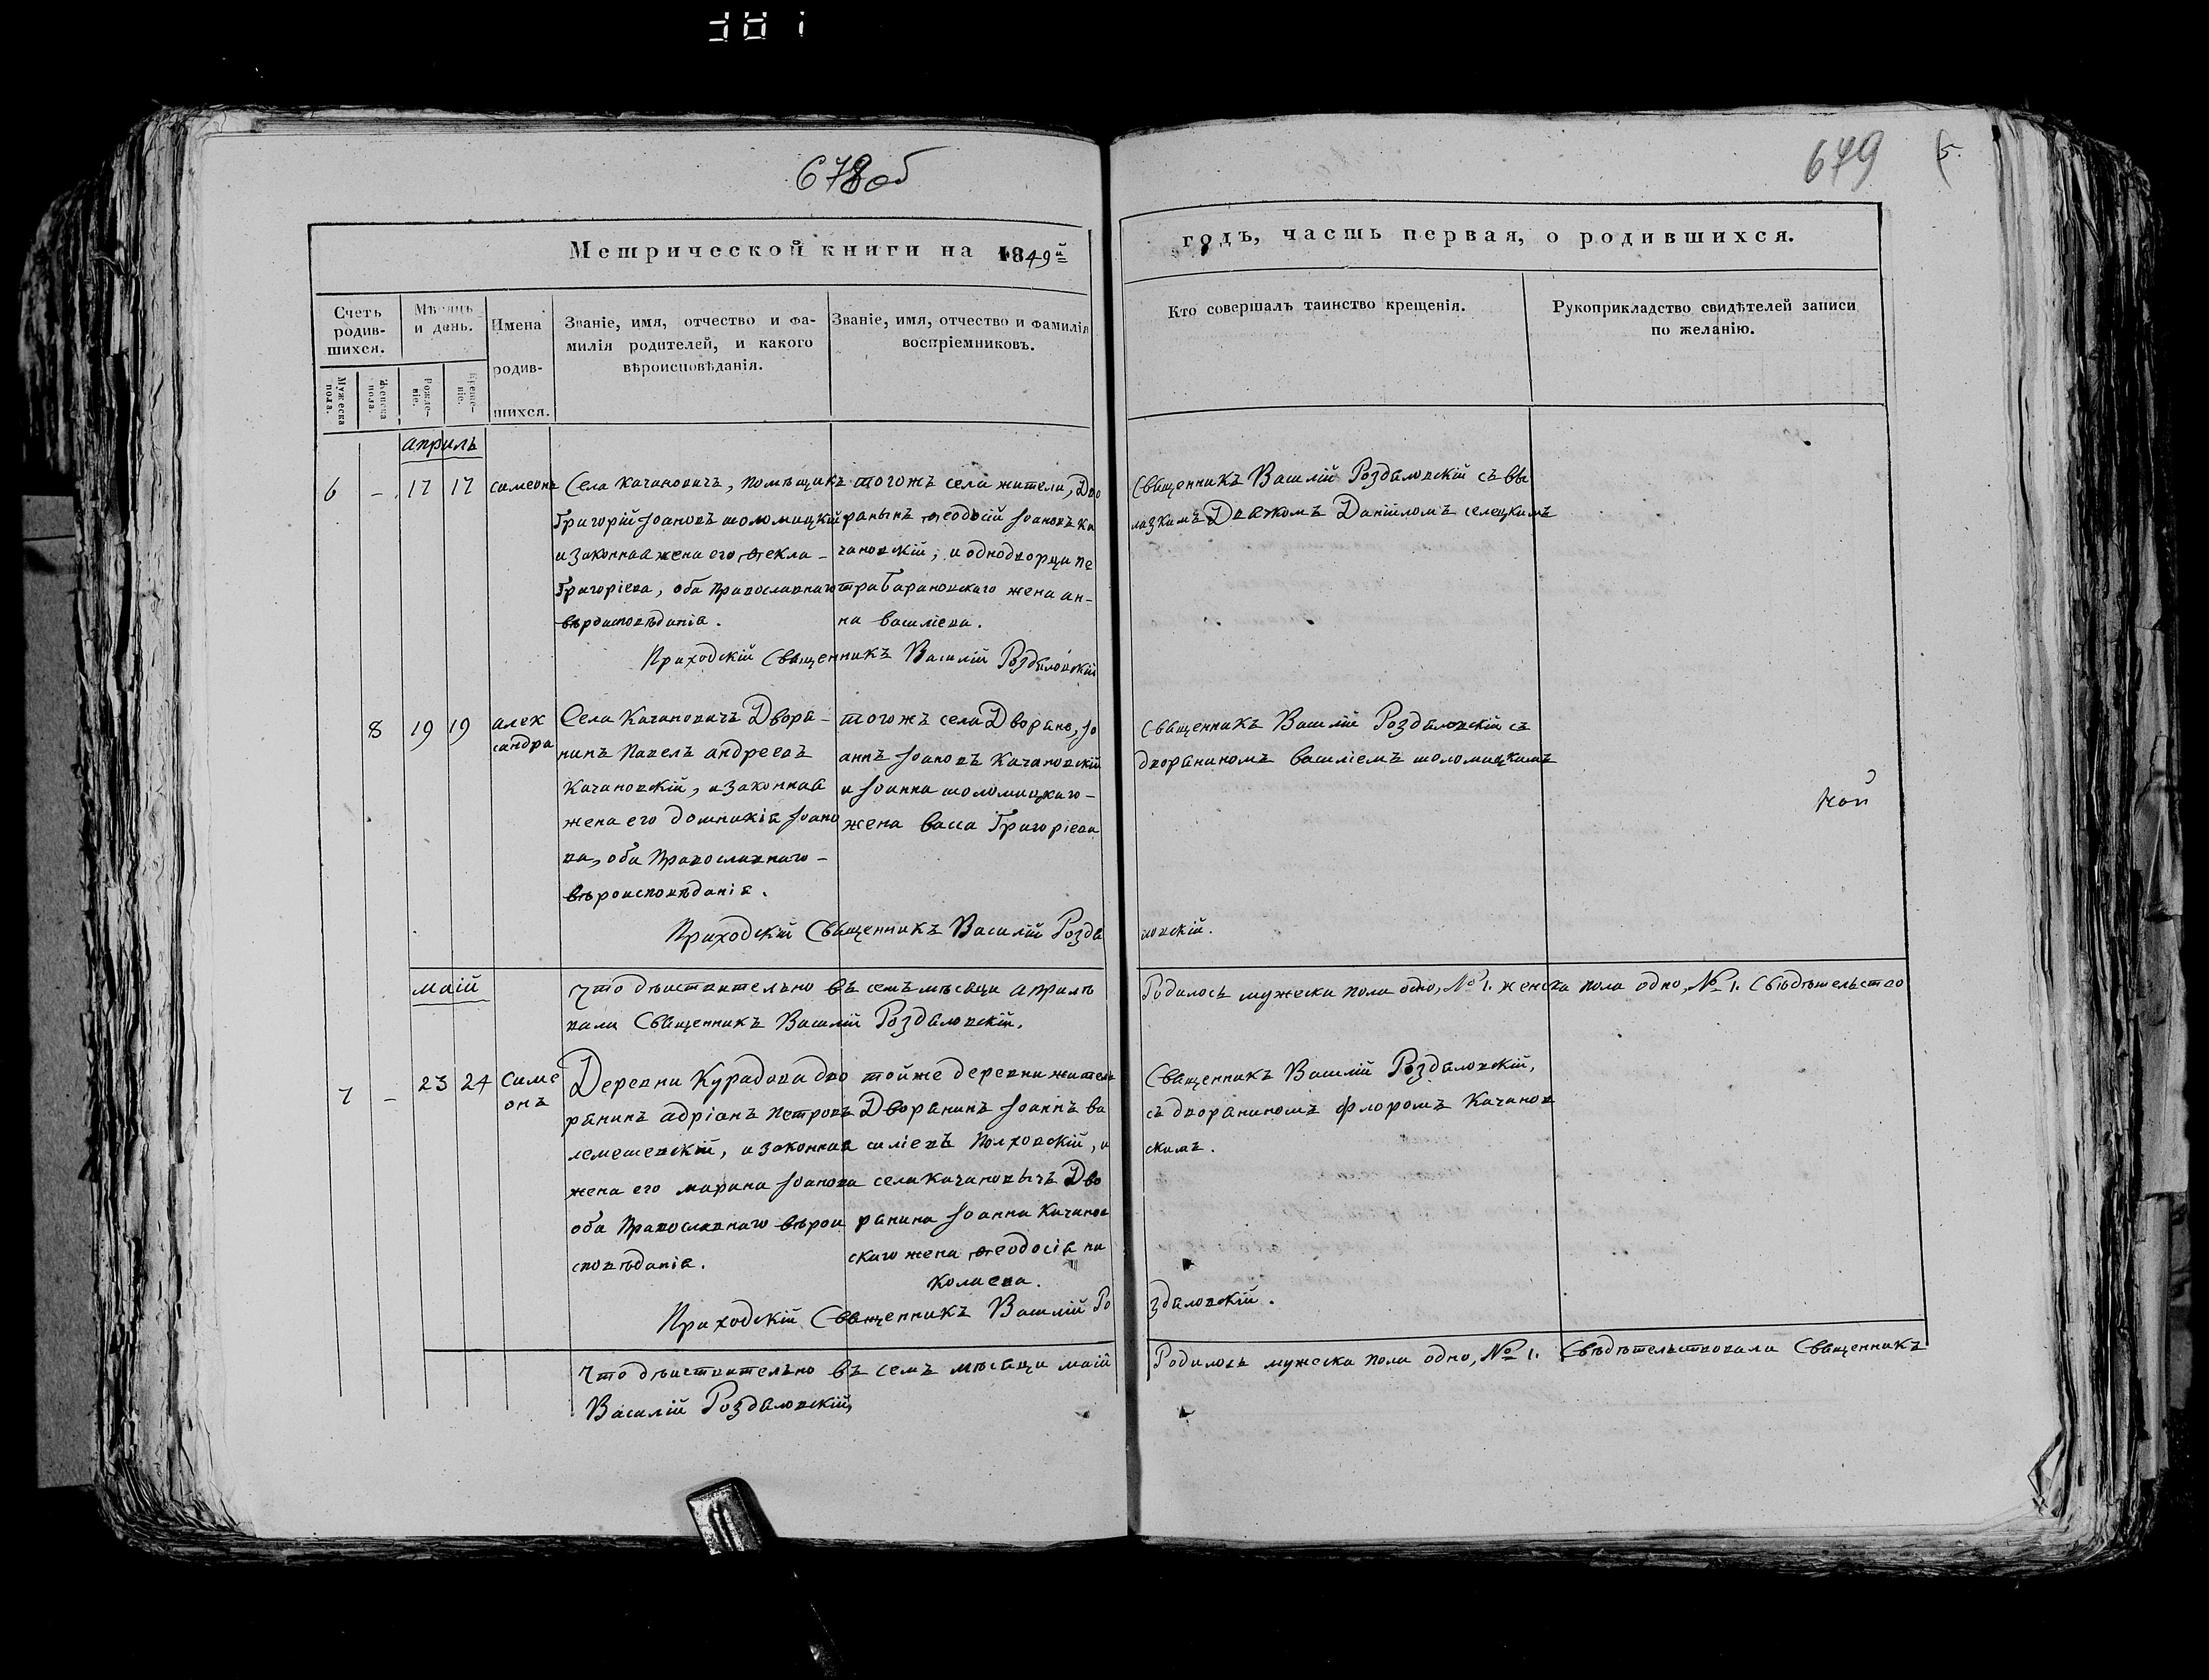 678об
679
5.
Метрической книги на 1849й
годъ, часть первая, о родившихся.
Счетъ родив-шихся.
Мѣсяцъ и день.
Имена родив-шихся.
Званіе, имя, отчество и фа-
милія родителей, и какого
вѣроисповѣданія.
Званіе, имя, отчество и фамилія
воспріемниковъ.
Кто совершалъ таинство крещенія.
Рукоприкладство свидѣтелей записи
по желанію.
Мужеска пола.
Женска пола.
Рожде-ніе.
Креще-ніе.
априль
6 - 17 17 симеонъ
Села Качановичъ, помѣщикъ
Григорій Іоановъ шоломицкій
и законная жена его, ѳекла -
Григоріева, оба православнаго
вѣроисповѣданія.
тогожъ села жители, Дво
рянынъ ѳеодосій Іоановъ Ка
чановскій, и однодворца пе
тра Барановскаго жена ан-
на василіева.
Священникъ Василій Роздяловскій съ вы
лазкимъ Дьячкомъ Даніиломъ селецкимъ
Приходскій Священникъ Василій Роздяловскій
8 19 19 алек
сандра
Села Качановичъ Дворя-
нинъ Павелъ андреевъ
Качановскій, и законная
жена его домникія Іоано
ва, оба православнаго -
вѣроисповѣданія.
тогожъ села Дворяне, Іо
аннъ Іоановъ Качановскій
и Іоанна шоломицкаго -
жена васса Григоріева
Священникъ Василій Роздяловскій съ
дворяниномъ василіемъ шоломицкимъ
Приходскій Священникъ Василій Роздя
ловскій.
маій
Что дѣиствительно въ семъ мѣсяци априлѣ
Родилось мужеска пола одно, № 1. женска пола одно, № 1. Свѣдѣтельство
вали Священникъ Василій Роздяловскій.
7 - 23 24 Симе
онъ
Деревни Курадова дво
рянинъ адріанъ петровъ
лемешевскій, и законная
жена его марина Іоанова
оба православнаго вѣрои
сповѣданія.
тойже деревни житель
Дворянинъ Іоаннъ ва
силіевъ Полховскій, и
села Качановычъ Дво
рянина Іоанна Качанов
скаго жена ѳеодосія ни
колаева.
Священникъ Василій Роздяловскій,
съ дворяниномъ флоромъ Качанов
скимъ.
Приходскій Священникъ Василій Ро
здяловскій.
Что дѣиствительно въ семъ мѣсяци маій
Родилось мужеска пола одно, № 1. Свѣдѣтельствовали Священникъ
Василій Роздяловскій,